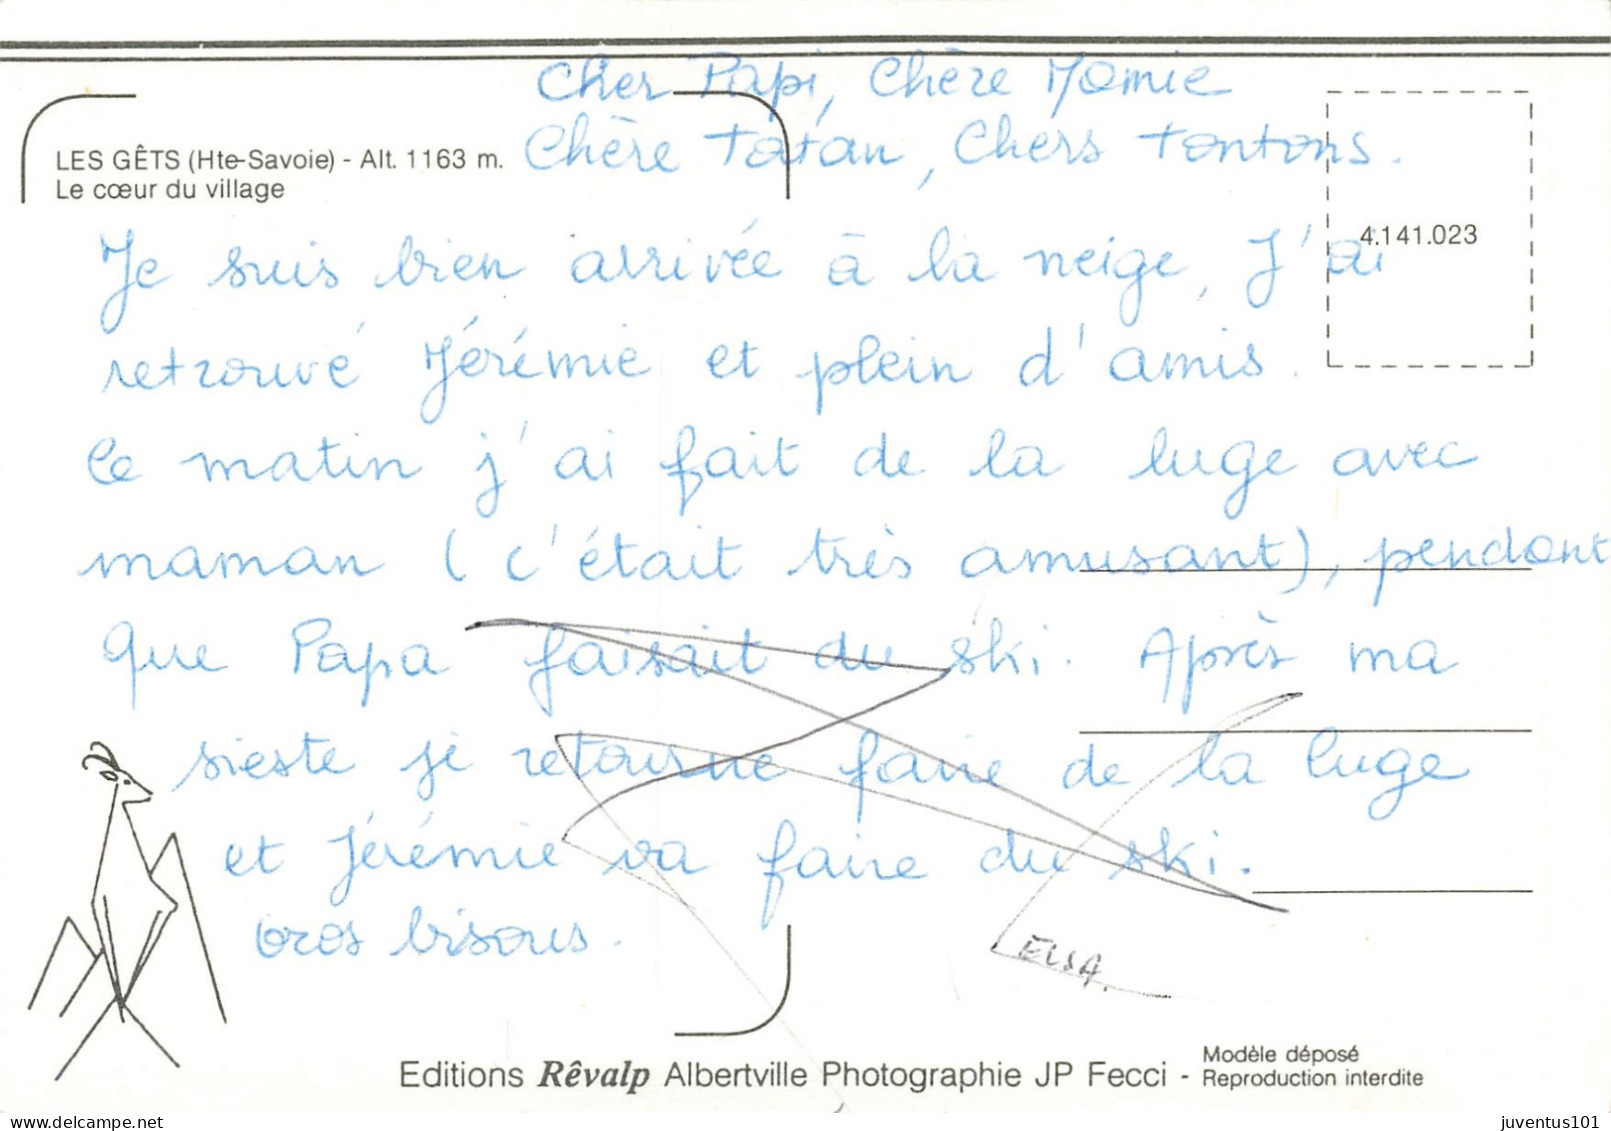 Cher Papi, Chère Mamie
Chère Tatan, Chers Tontons.
LES GÊTS (Hte-Savoie) - Alt. 1163 m.
Le cœur du village
4.141.023
Je suis bien arrivée à la neige, J'ai
retrouvé Jérémie et plein d'amis.
Ce matin j'ai fait de la luge avec
maman (c'était très amusant), pendant
que Papa faisait du ski. Après ma
sieste je retourne faire de la luge
et Jérémie va faire du ski.
Gros bisous.
ELSA.
Editions Rêvalp Albertville Photographie JP Fecci - Modèle déposé
Reproduction interdite
juventus101